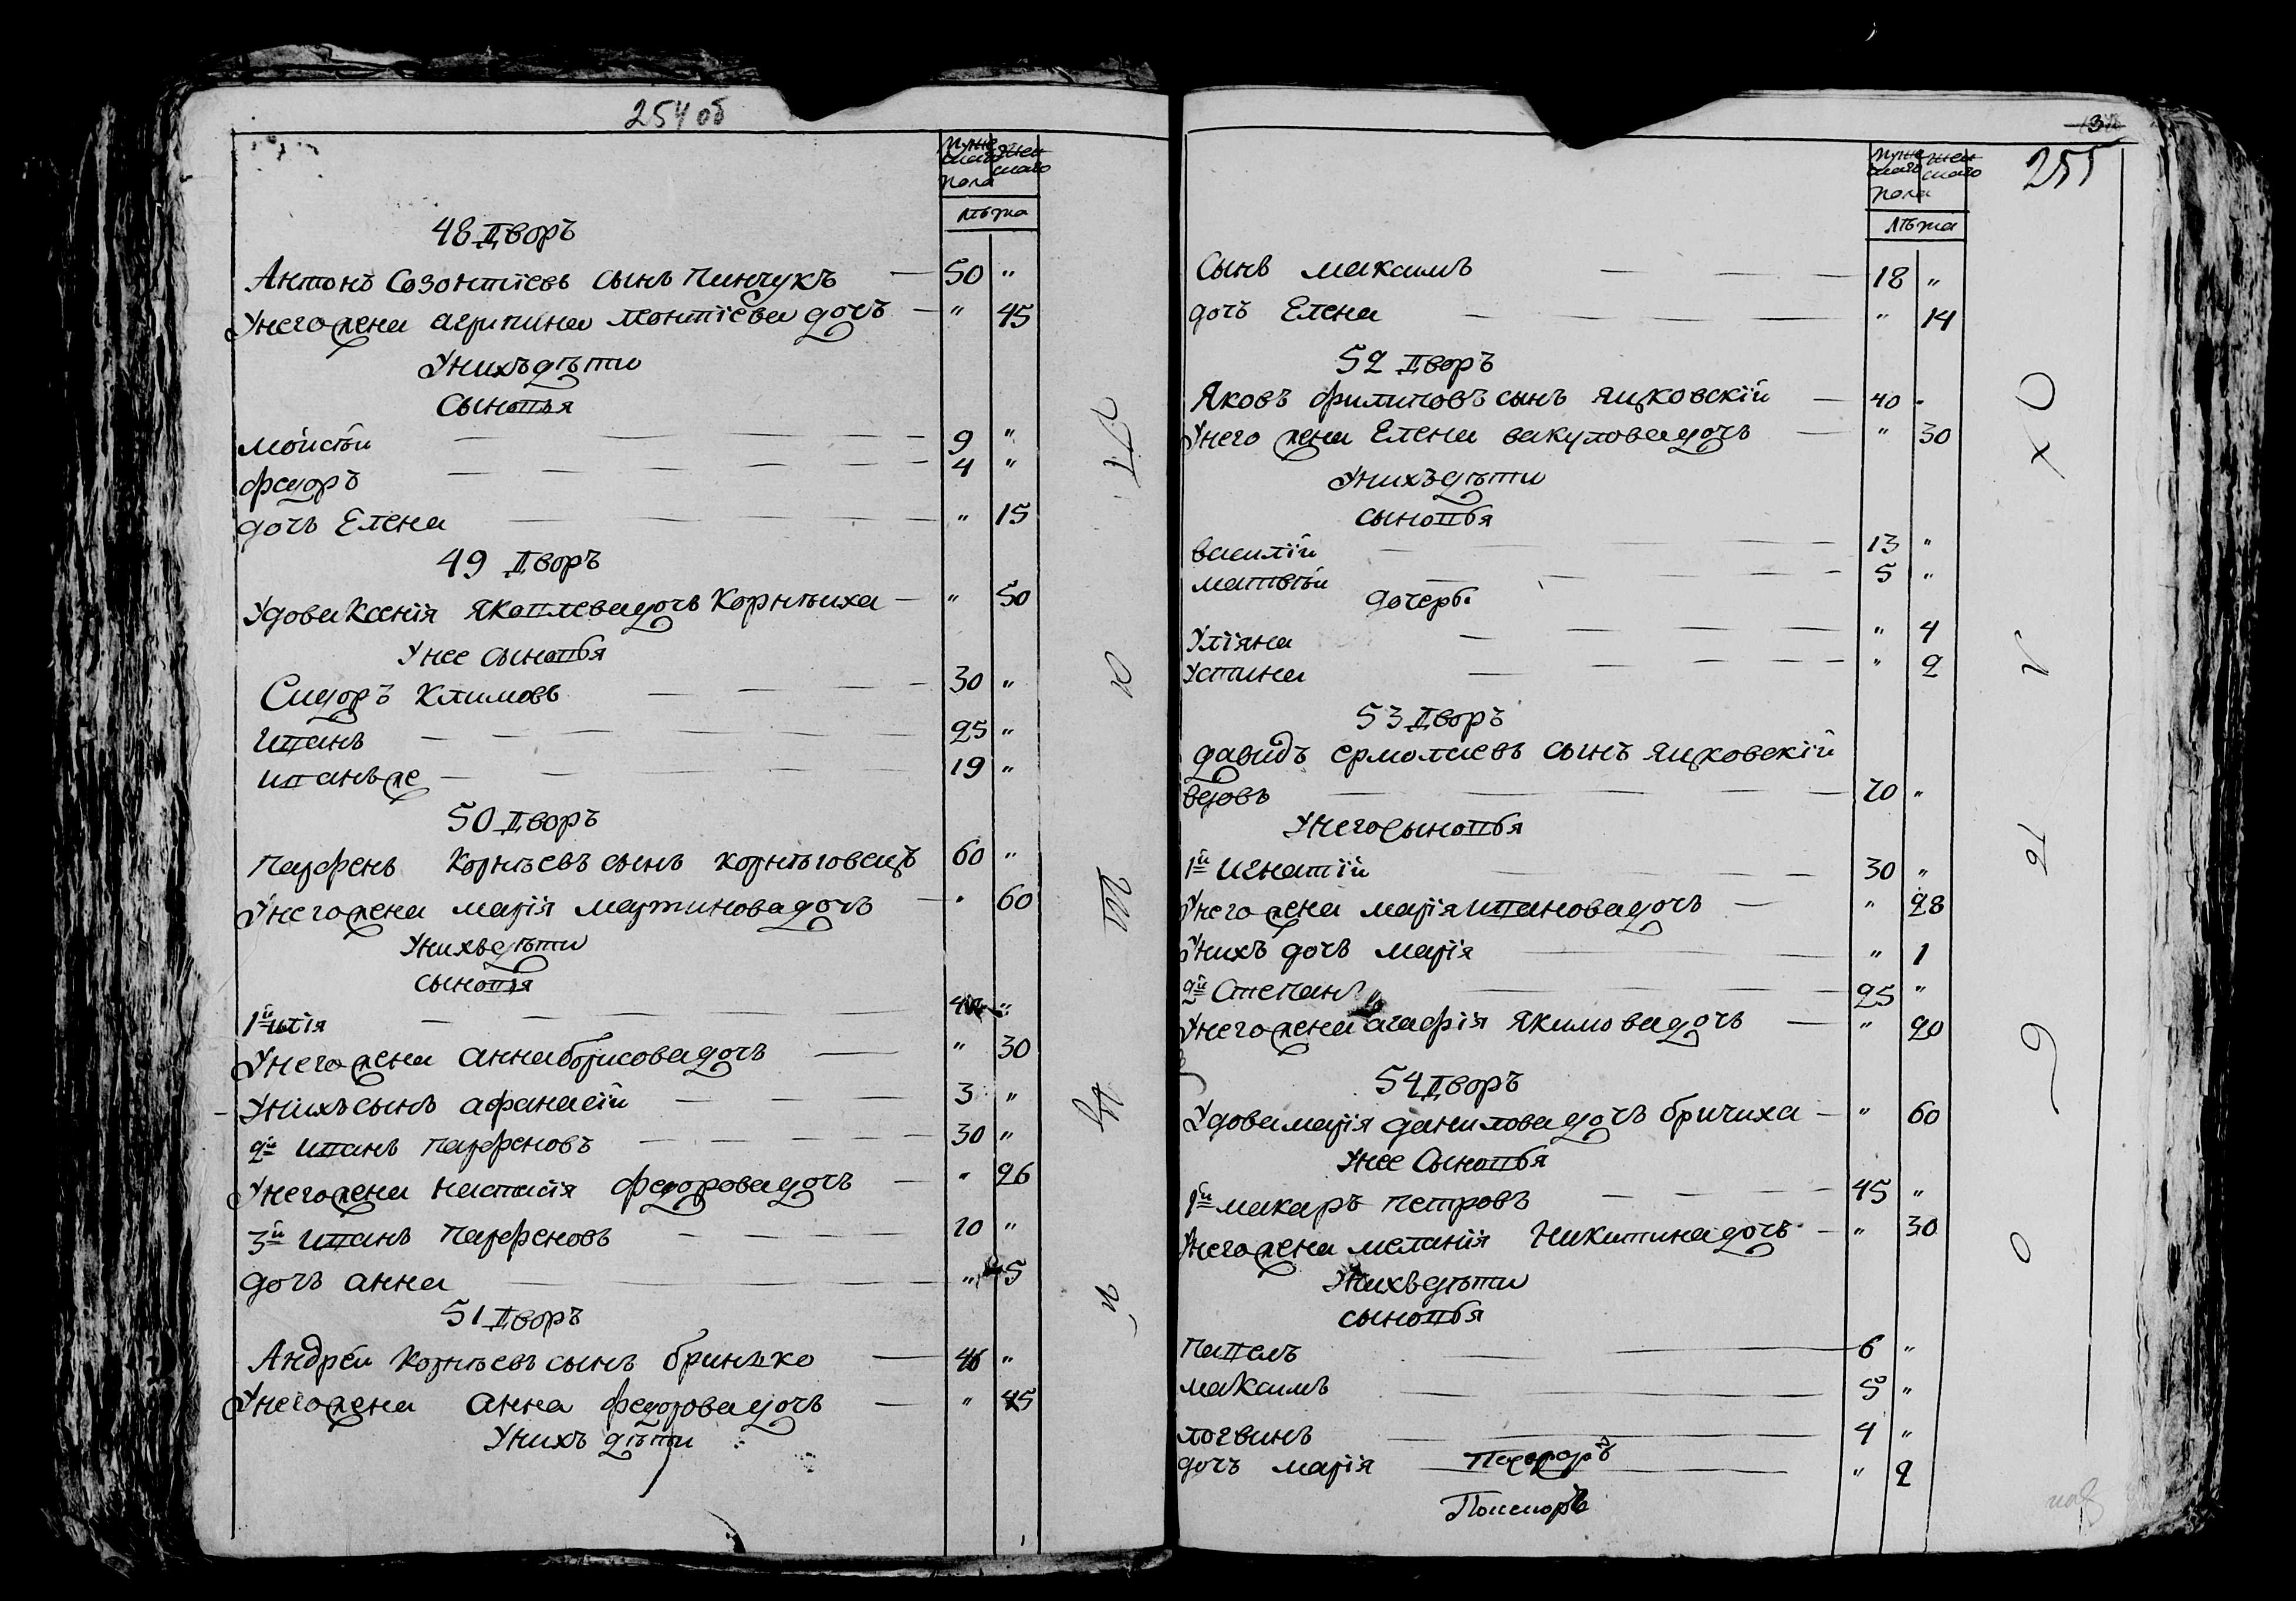 254 об
мужескаго пола женскаго
лѣта
48 дворъ
Антонъ Созонтіевъ сынъ пинчукъ — 50 "
Унего жена агрипина леонтіева дочь — " 45
Унихъ дѣти
Сыновья
мойсѣй — 9 "
федоръ — 4 "
дочь Елена — " 15
49 дворъ
Удова Ксенія Яковлева дочь Корнѣиха — " 50
Унее сыновья
Сидоръ Климовъ — 30 "
иванъ — 25 "
иванъ же — 19 "
50 дворъ
парфенъ Корнѣевъ сынъ корнѣговецъ 60 "
Унего жена марія мартинова дочь — " 60
Унихъ дѣти
сыновья
1й илія — "
Унего жена анна борисова дочь — " 30
Унихъ сынъ афанасій — 3 "
2й иванъ парфеновъ — 30 "
Унего жена настасія федорова дочь — " 26
3й иванъ парфеновъ — 20 "
дочь анна — " 5
51 дворъ
Андрей корнѣевъ сынъ бринько — 46 "
Унего жена анна федорова дочь — " 45
Унихъ дѣти
255
мужескаго пола женскаго
лѣта
Сынъ максимъ — 18 "
дочь Елена — " 14
52 дворъ
Яковъ филиповъ сынъ яцковскій — 40 "
Унего жена Елена вакулова дочь — " 30
Унихъ дѣти
сыновья
василій — 13 "
матвѣй — 5 "
дочерь
Уліяна — " 4
Устина — " 2
53 дворъ
давидъ ермолаевъ сынъ яцковскій
вдовъ — 70 "
Унего сыновья
1й игнатій — 30 "
Унего жена марія иванова дочь — " 28
Унихъ дочь марія — " 1
2й Степанъ — 25 "
Унего жена агафія якимова дочь — " 20
54 дворъ
Удова марія данилова дочь бричиха — " 60
Унее Сыновья
1й макаръ петровъ — 45 "
Унего жена меланія Никитина дочь — " 30
Унихъ дѣти
сыновья
павелъ — 6 "
максимъ — 5 "
логвинъ — 4 "
дочь марія — " 2